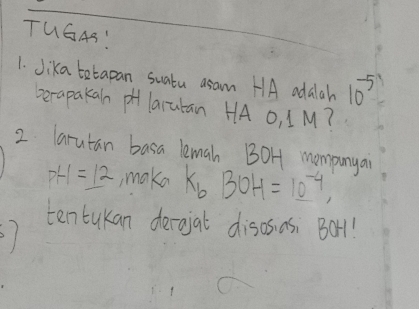 TUGAS!
1. Jika tetapan suatu asam HA adalah 10⁻⁵
berapakah pH larutan HA 0,1 M?
2 larutan basa lemah BOH mempunyai
pH = 12, maka K_b BOH = 10⁻⁴,
tentukan derajat disosiasi BOH!